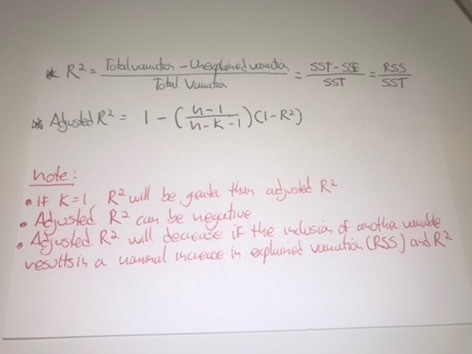 * R² = Total variation - Unexplained variation / Total Variation = SST - SSE / SST = RSS / SST
* Adjusted R² = 1 - (n-1 / n-k-1)(1-R²)
note:
• If K=1, R² will be greater than adjusted R²
• Adjusted R² can be negative
• Adjusted R² will decrease if the inclusion of another variable
results in a nominal increase in explained variation (RSS) and R²